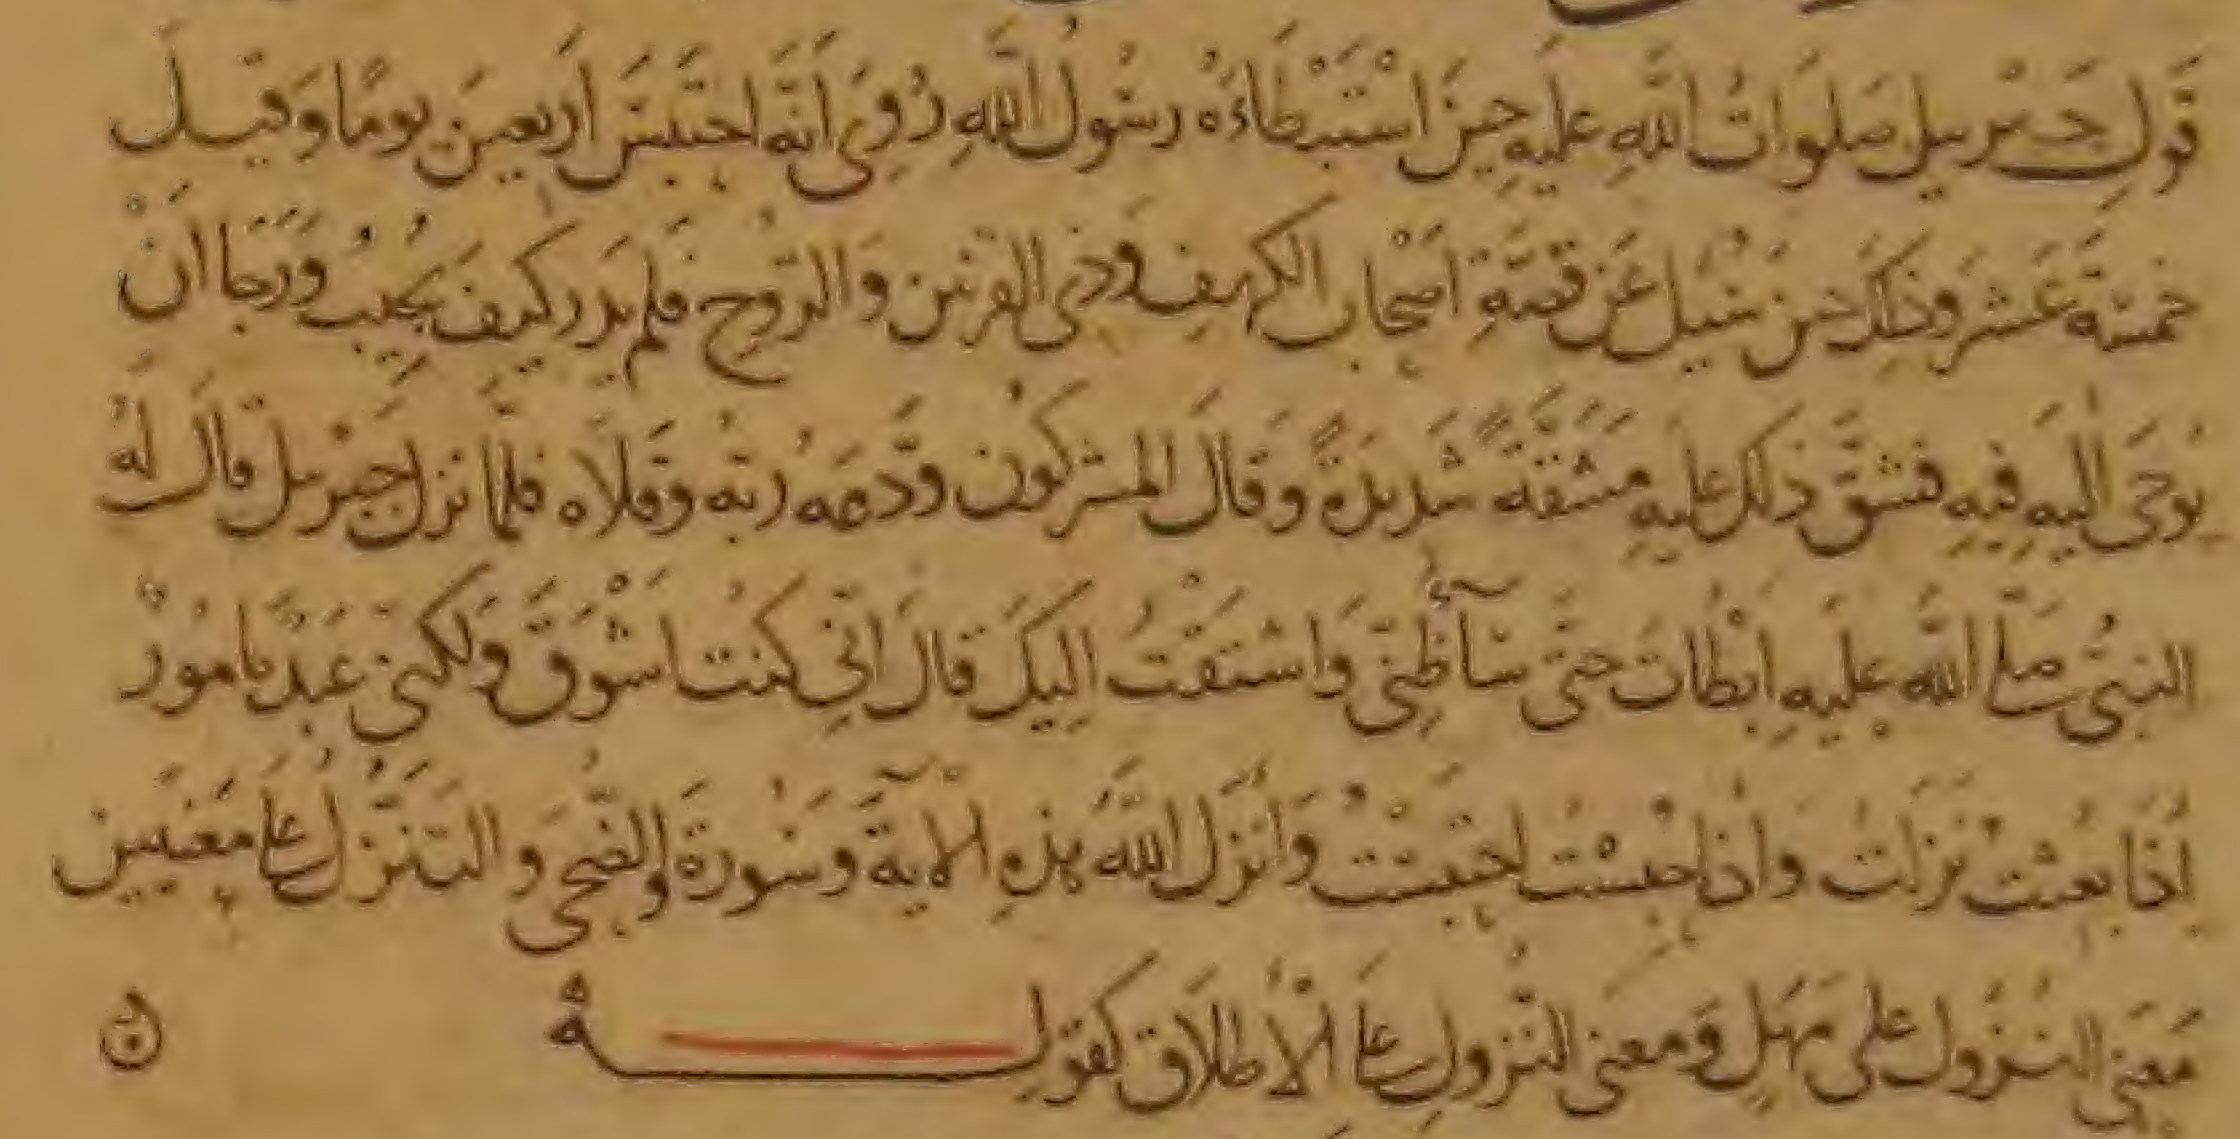 قَوْلِ جَبْرَئِيل صَلَوَاتُ اللَّهِ عليهِ حِينَ اسْتَبْطَاءَهُ رسُولُ اللهِ رُوِىَ أَنَّهُ احْتَبَسَ أَربعينَ يومًا وَقيلَ
خمسَةَ عَشَرَ وذلكَ حينَ سُئِلَ عَن قصَّةِ أَصْحابِ الكهفِ وَذِى القرنين وَالروُحِ فَلم يَدرِ كيفَ يُجِيبُ وَرَجَا انْ
يُوحَى اليهِ فِيهِ فشقَّ ذلك عليهِ مَشَقَّةً شَديدَةً وَقَالَ المشركونَ وَدَّعَهُ ربّهُ وَقَلاه فلمَّا نزل جَبْرئيل قالَ لهُ
النبىُّ صَلّى اللهُ عليهِ ابْطَأتَ حتّى سَآءَ ظنِّى وَاشتقْتُ اليكَ قالَ انّى كنتُ اشْوَقَ وَلكنّى عَبدٌ مامُورٌ
اِذَا بُعثتُ نَزَلتُ وَاِذَا حُبِسْتُ احْتَبَسْتُ وَأَنزَلَ اللَّهُ هذِهِ الآيةَ وَسُورَةَ وَالضُّحَى وَالتَنَزُّلُ على مَعنَيين
مَعنَى النُزُول على مَهَلٍ وَمعنَى النُّزولِ على الْاِطلَاقِ كَقولهُ